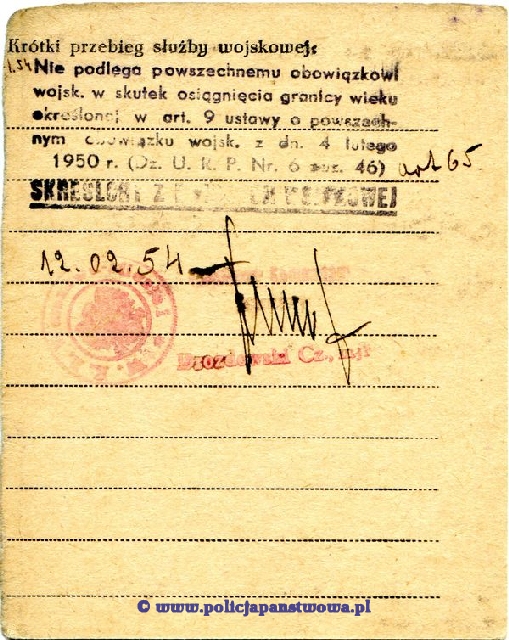 Krótki przebieg służby wojskowej:
Nie podlega powszechnemu obowiązkowi
wojsk. w skutek osiągnięcia granicy wieku
określonej w art. 9 ustawy o powszech-
nym obowiązku wojsk. z dn. 4 lutego
1950 r. (Dz. U. R. P. Nr. 6 poz. 46) art 65
SKREŚLONY Z
12.02.54
Drozdowski Cz., mjr
© www.policjapanstwowa.pl